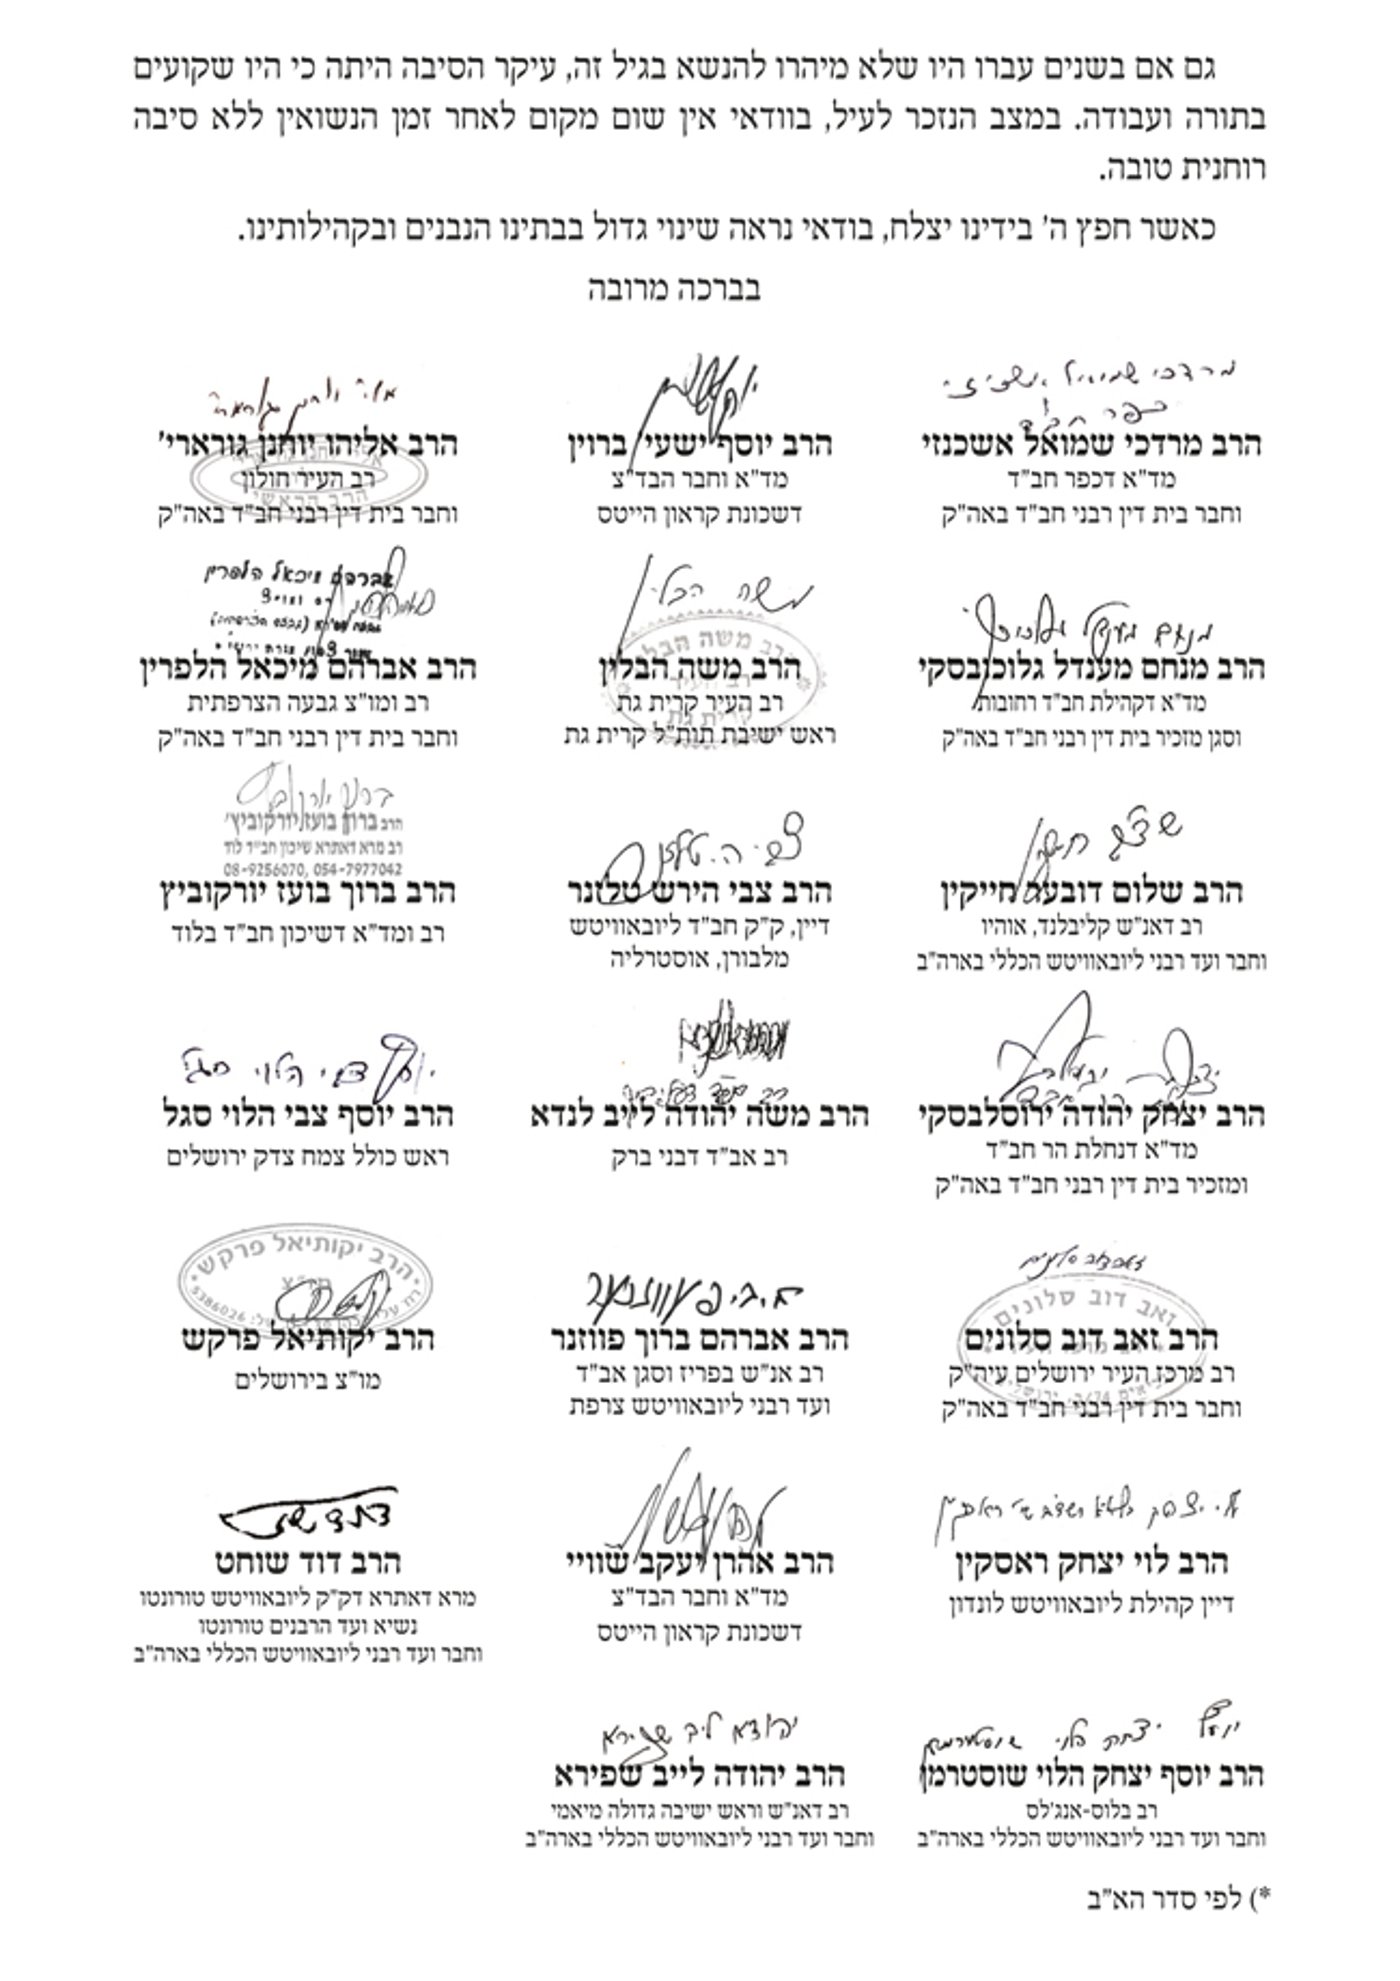 גם אם בשנים עברו היו שלא מיהרו להנשא בגיל זה, עיקר הסיבה היתה כי היו שקועים
בתורה ועבודה. במצב הנזכר לעיל, בוודאי אין שום מקום לאחר זמן הנשואין ללא סיבה
רוחנית טובה.
כאשר חפץ ה' בידינו יצלח, בודאי נראה שינוי גדול בבתינו הנבנים ובקהילותינו.
בברכה מרובה
מרדכי שמואל אשכנזי
כפר חב"ד
הרב מרדכי שמואל אשכנזי
מד"א דכפר חב"ד
וחבר בית דין רבני חב"ד באה"ק
הרב יוסף ישעי' ברוין
מד"א וחבר הבד"צ
דשכונת קראון הייטס
הרב אליהו יוחנן גורארי'
רב העיר חולון
וחבר בית דין רבני חב"ד באה"ק
הרב הראשי
מנחם מענדל גלוכובסקי
הרב מנחם מענדל גלוכובסקי
מד"א דקהילת חב"ד רחובות
וסגן מזכיר בית דין רבני חב"ד באה"ק
משה הבלין
הרב משה הבלין
רב העיר קרית גת
ראש ישיבת תות"ל קרית גת
הרב משה הבלין
רב העיר
קרית גת
אברהם מיכאל הלפרין
הרב אברהם מיכאל הלפרין
רב ומו"צ גבעה הצרפתית
וחבר בית דין רבני חב"ד באה"ק
הרב שלום דובער חייקין
רב דאנ"ש קליבלנד, אוהיו
וחבר ועד רבני ליובאוויטש הכללי בארה"ב
צבי ה. טלזנר
הרב צבי הירש טלזנר
דיין, ק"ק חב"ד ליובאוויטש
מלבורן, אוסטרליה
הרב ברוך בועז יורקוביץ'
רב מרא דאתרא שיכון חב"ד לוד
08-9256070, 054-7977042
הרב ברוך בועז יורקוביץ
רב ומד"א דשיכון חב"ד בלוד
הרב יצחק יהודה ירוסלבסקי
מד"א דנחלת הר חב"ד
ומזכיר בית דין רבני חב"ד באה"ק
הרב משה יהודה לייב לנדא
רב אב"ד דבני ברק
יוסף צבי הלוי סגל
הרב יוסף צבי הלוי סגל
ראש כולל צמח צדק ירושלים
זאב דוב סלונים
הרב זאב דוב סלונים
רב מרכז העיר ירושלים עיה"ק
וחבר בית דין רבני חב"ד באה"ק
א.ב. פעווזנער
הרב אברהם ברוך פווזנר
רב אנ"ש בפריז וסגן אב"ד
ועד רבני ליובאוויטש צרפת
הרב יקותיאל פרקש
מו"צ
5386026
הרב יקותיאל פרקש
מו"צ בירושלים
הרב לוי יצחק ראסקין
דיין קהילת ליובאוויטש לונדון
הרב אהרן יעקב שוויי
מד"א וחבר הבד"צ
דשכונת קראון הייטס
הרב דוד שוחט
מרא דאתרא דק"ק ליובאוויטש טורונטו
נשיא ועד הרבנים טורונטו
וחבר ועד רבני ליובאוויטש הכללי בארה"ב
יוסף יצחק הלוי שוסטרמן
הרב יוסף יצחק הלוי שוסטרמן
רב בלוס-אנג'לס
וחבר ועד רבני ליובאוויטש הכללי בארה"ב
יהודא ליב שפירא
הרב יהודה לייב שפירא
רב דאנ"ש וראש ישיבה גדולה מיאמי
וחבר ועד רבני ליובאוויטש הכללי בארה"ב
*) לפי סדר הא"ב